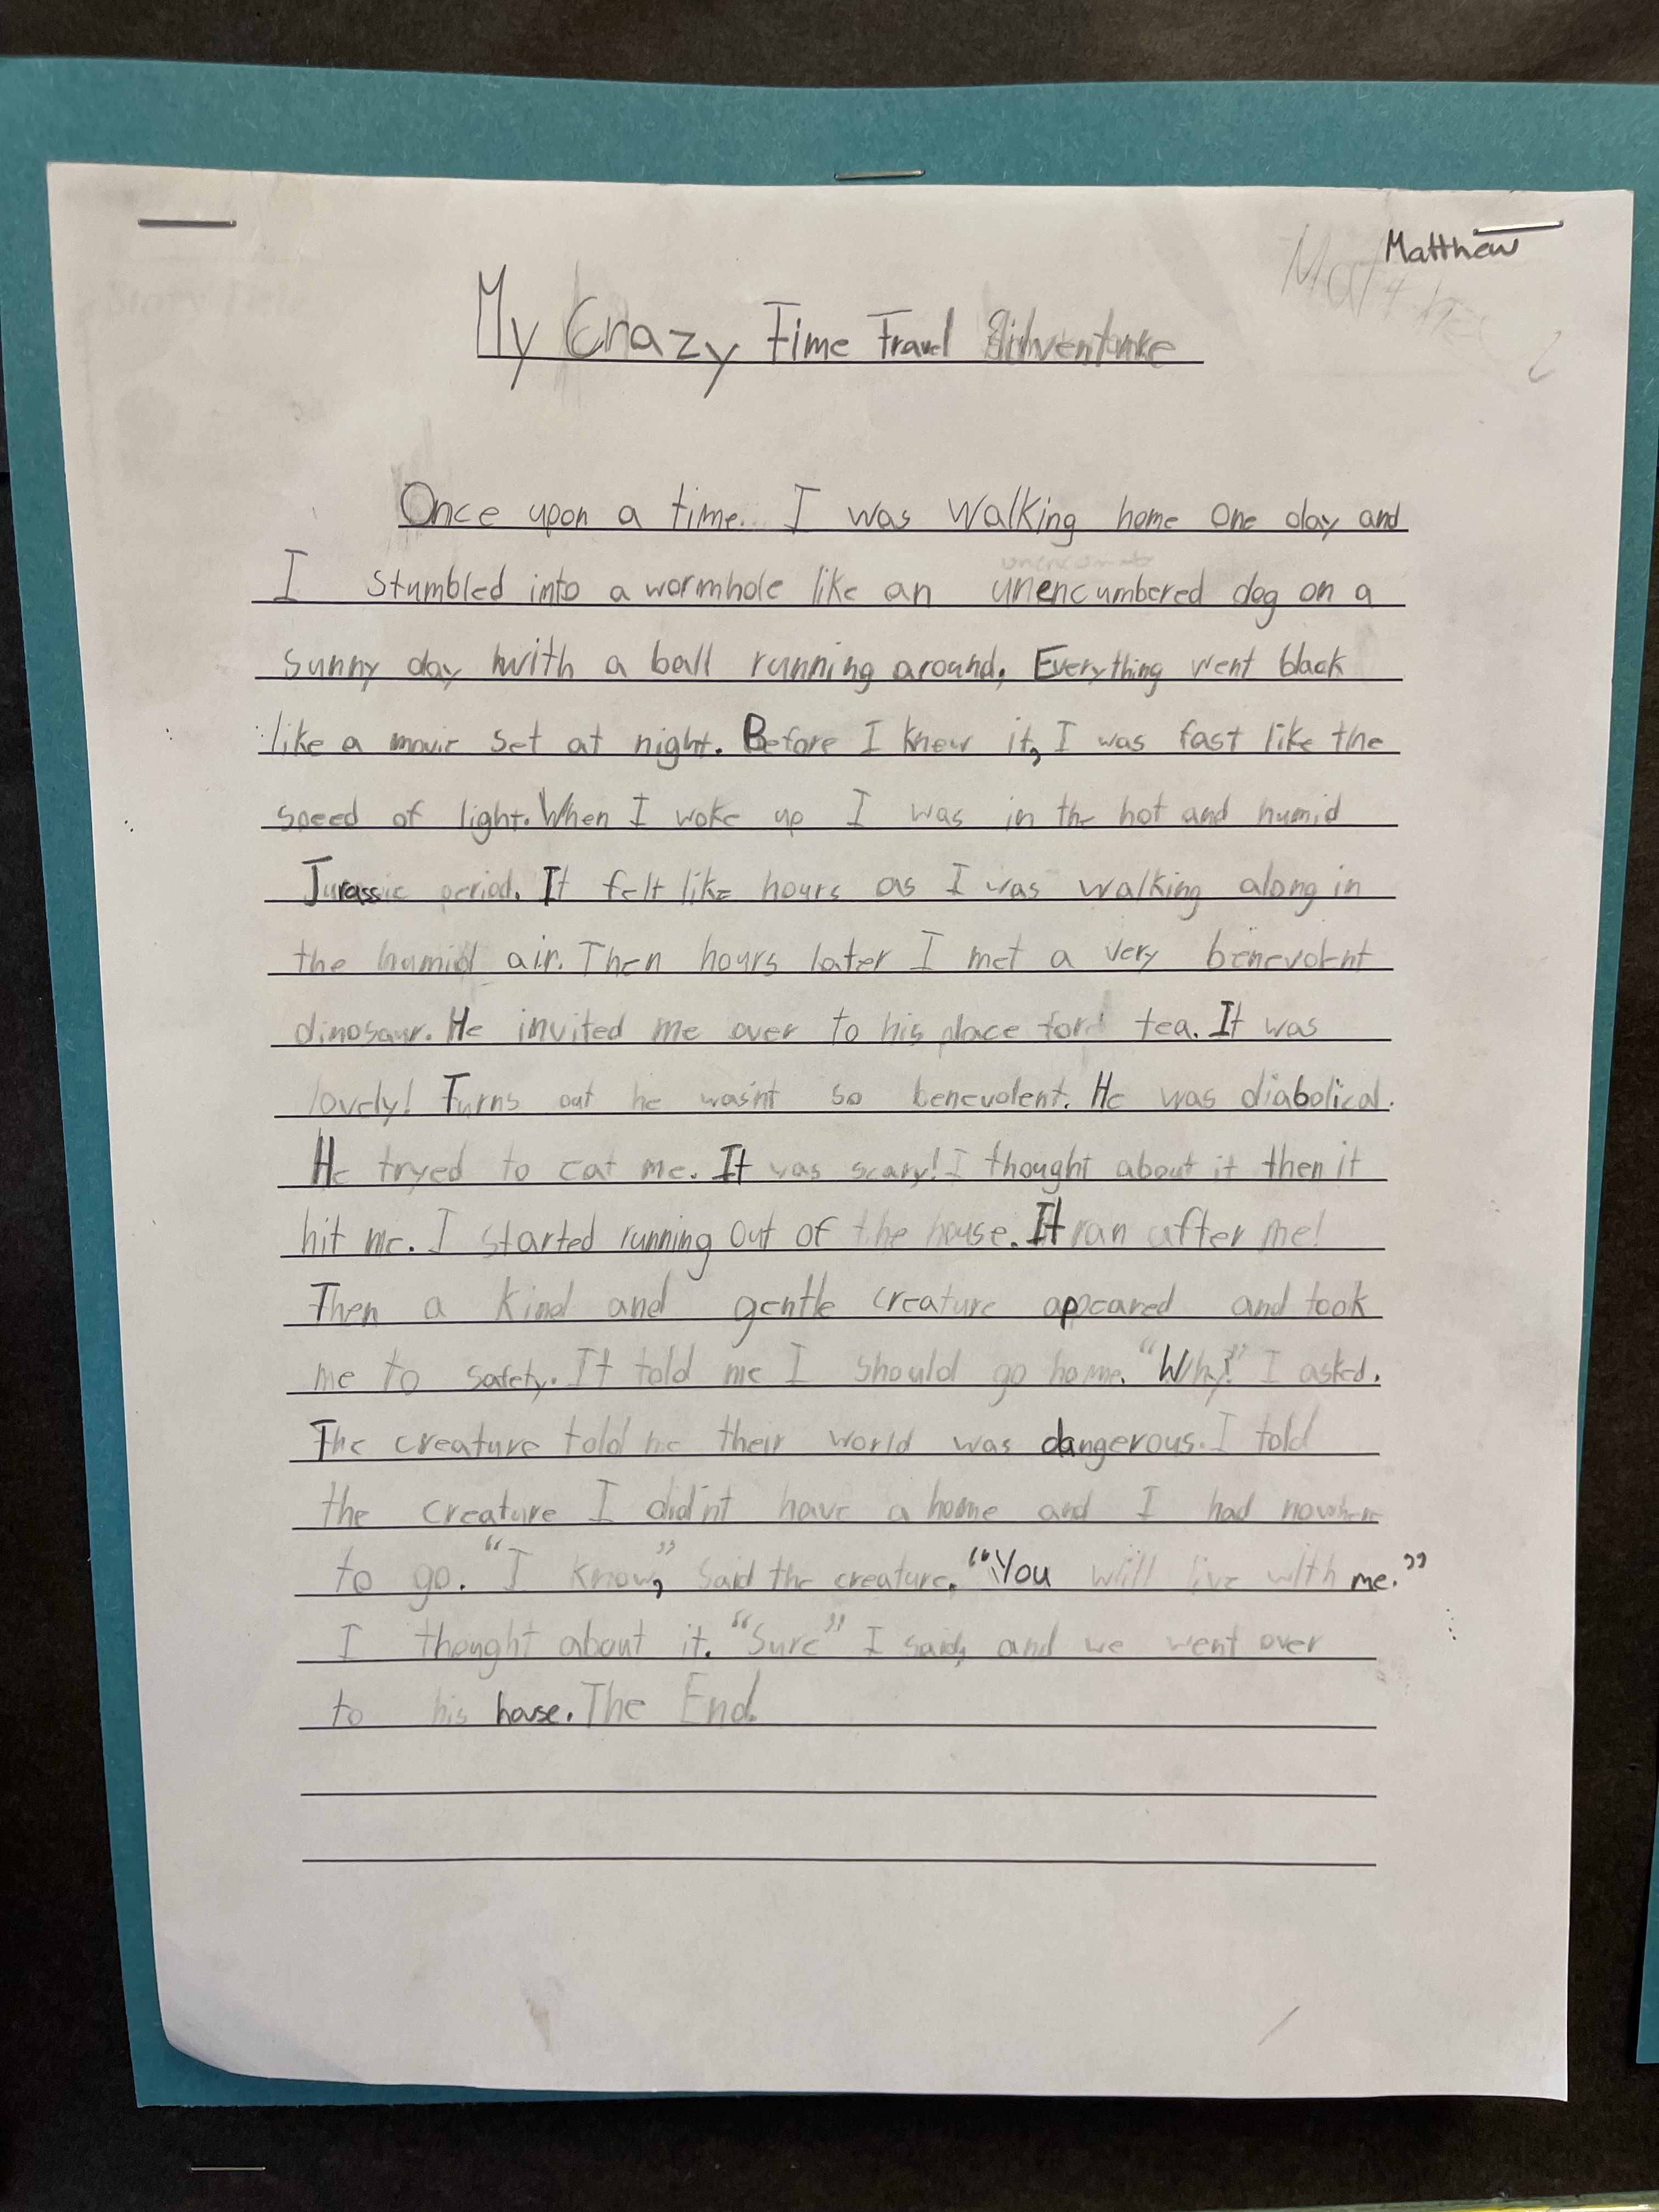 Matthew
My Crazy Time Travel Adventure
Once upon a time... I was walking home one day and
I stumbled into a wormhole like an unencumbered dog on a
sunny day with a ball running around. Everything went black
like a movie set at night. Before I knew it, I was fast like the
speed of light. When I woke up I was in the hot and humid
Jurassic period. It felt like hours as I was walking along in
the humid air. Then hours later I met a very benevolent
dinosaur. He invited me over to his place for tea. It was
lovely! Turns out he wasn't so benevolent. He was diabolical.
He tryed to eat me. It was scary! I thought about it then it
hit me. I started running out of the house. It ran after me!
Then a kind and gentle creature appeared and took
me to safety. It told me I should go home. "Why?" I asked.
The creature told me their world was dangerous. I told
the creature I did'nt have a home and I had nowhere
to go. "I know," said the creature. "You will live with me."
I thought about it. "Sure" I said, and we went over
to his house. The End.